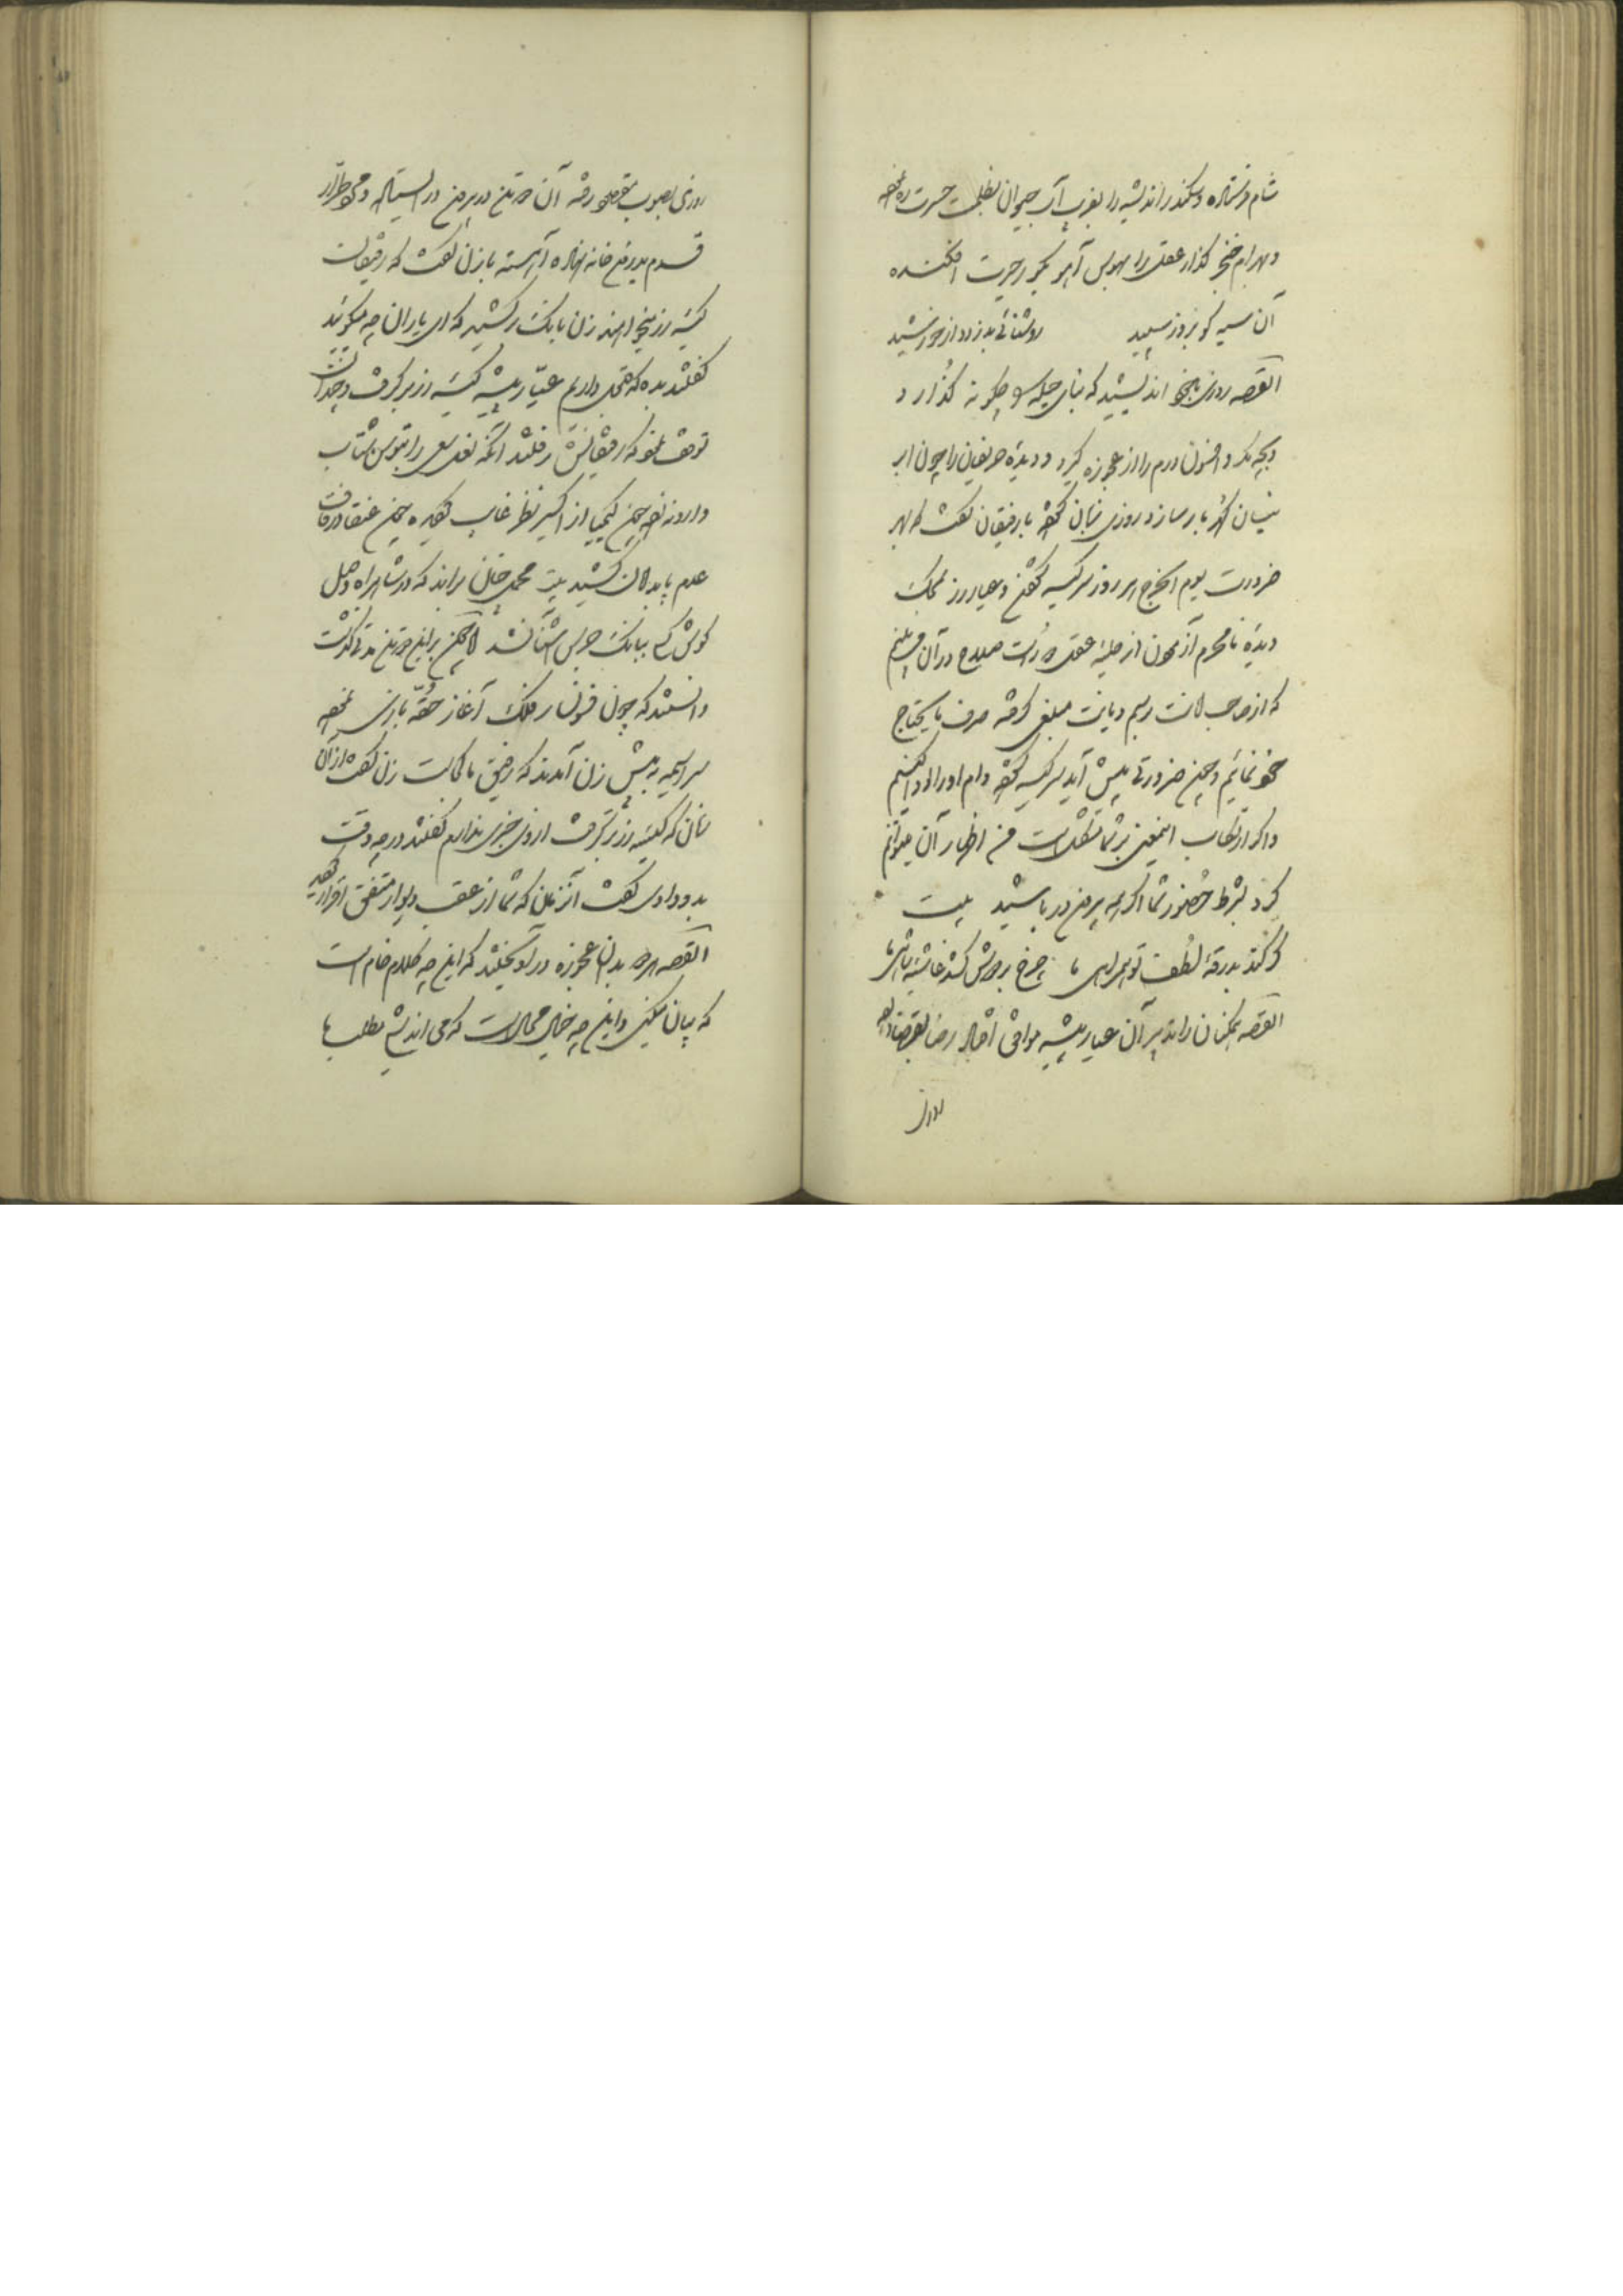 شام فرستاده و سکندر اندیشه را بفریب آب حیوان بظلمت حسرت
و بهرام خنجر گذار عقل را بهوس آهو بگور حیرت افکنده
آن سیه کو بروز سپید روشنائی بدزدد از خورشید
القصه روزی با خود اندیشید که بنای حیله را چگونه گذارد
بچه مکر و افسون درم را از عجوزه گیرد و دیده حریفان را چون ابر
نیسان گهر بار سازد روزی زبان گشوده با رفیقان گفت که بهر
ضرورت یوم الخرج هر روز سر کیسه گشودن و عیار زر محک
دیده نامحرم آزمودن از حلیه عقل دور است صلاح در آن می بینم
که از صاحب امانت برسم دیانت مبلغی گرفته صرف مایحتاج
خود نمائیم و چون ضرورتی پیش آید سر کیسه گشوده وام او را ادا کنیم
و اگر ارتکاب اینمعنی بر شما مشکل است من اظهار آن میتوانم
کرد بشرط حضور شما اگر همه بیرون در باشید بیت
گر کند بدرقه لطف تو همراهی ما چرخ بر دوش کشد غاشیه شاهی ما
القصه همگنان را تدبیر آن عیار پیشه موافق افتاد رضا بقضا داده
روزی
روزی بصوب مقصود رفته آن دو تن در بیرون در ایستاده و طرار
قدم بدرون خانه نهاده آهسته با زن گفت که رفیقانت
کیسه زر میخواهند زن بانگ برکشید که ای یاران چه میگوئید
گفتند بده که تعجیل داریم عیار پیشه کیسه زر بر گرفت و چندان
توقف نمود که رفقایش رفتند آنگه نقد سعی را بتوس شتاب
داد و چون کیمیا از اکسیر نظر غایب گردیده چون عنقا در قاف
عدم پا بدامان کشید بیت محمل چنان براند که در شاهراه وصل
گوش کسی ببانگ جرس آشنا نشد لیکن برین دو تن مدتی گذشت
دانستند که چون فسونساز فلک آغاز حقه بازی نموده
سراسیمه به پیش زن آمدند که رفیق ما کجاست زن گفت از آن
زمان که کیسه زر بگرفت از وی خبری ندارم گفتند در چه وقت
بدو دادی گفت آنزمان که شما از عقب دیوار متفق اقرار کردید
القصه هر دو بدان عجوزه در آویختند که این چه کلام خام است
که بیان میکنی و این چه خیال محال است که می اندیشی مطلب ما